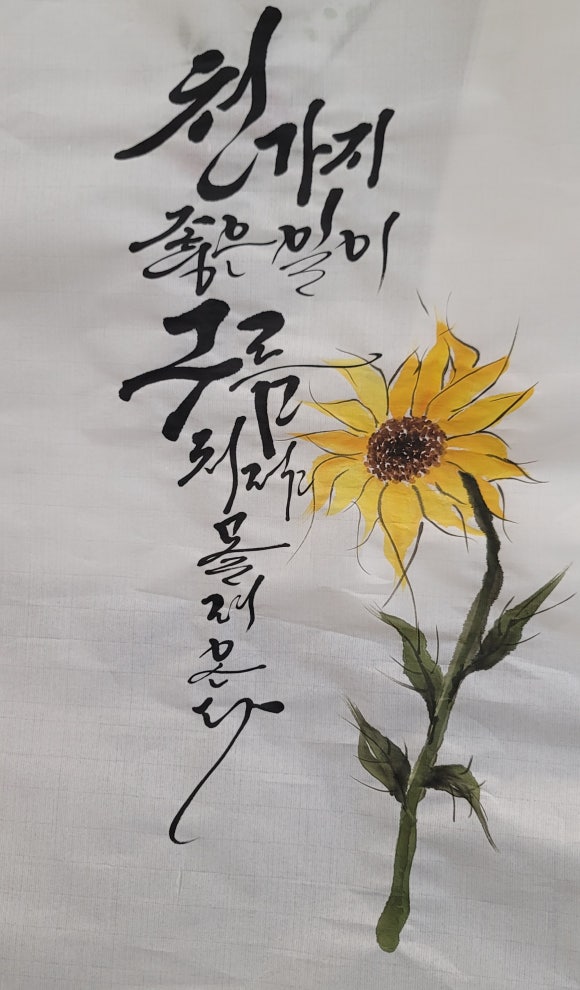 천 가지
좋은 일이
구름
처럼
몰
려
온
다